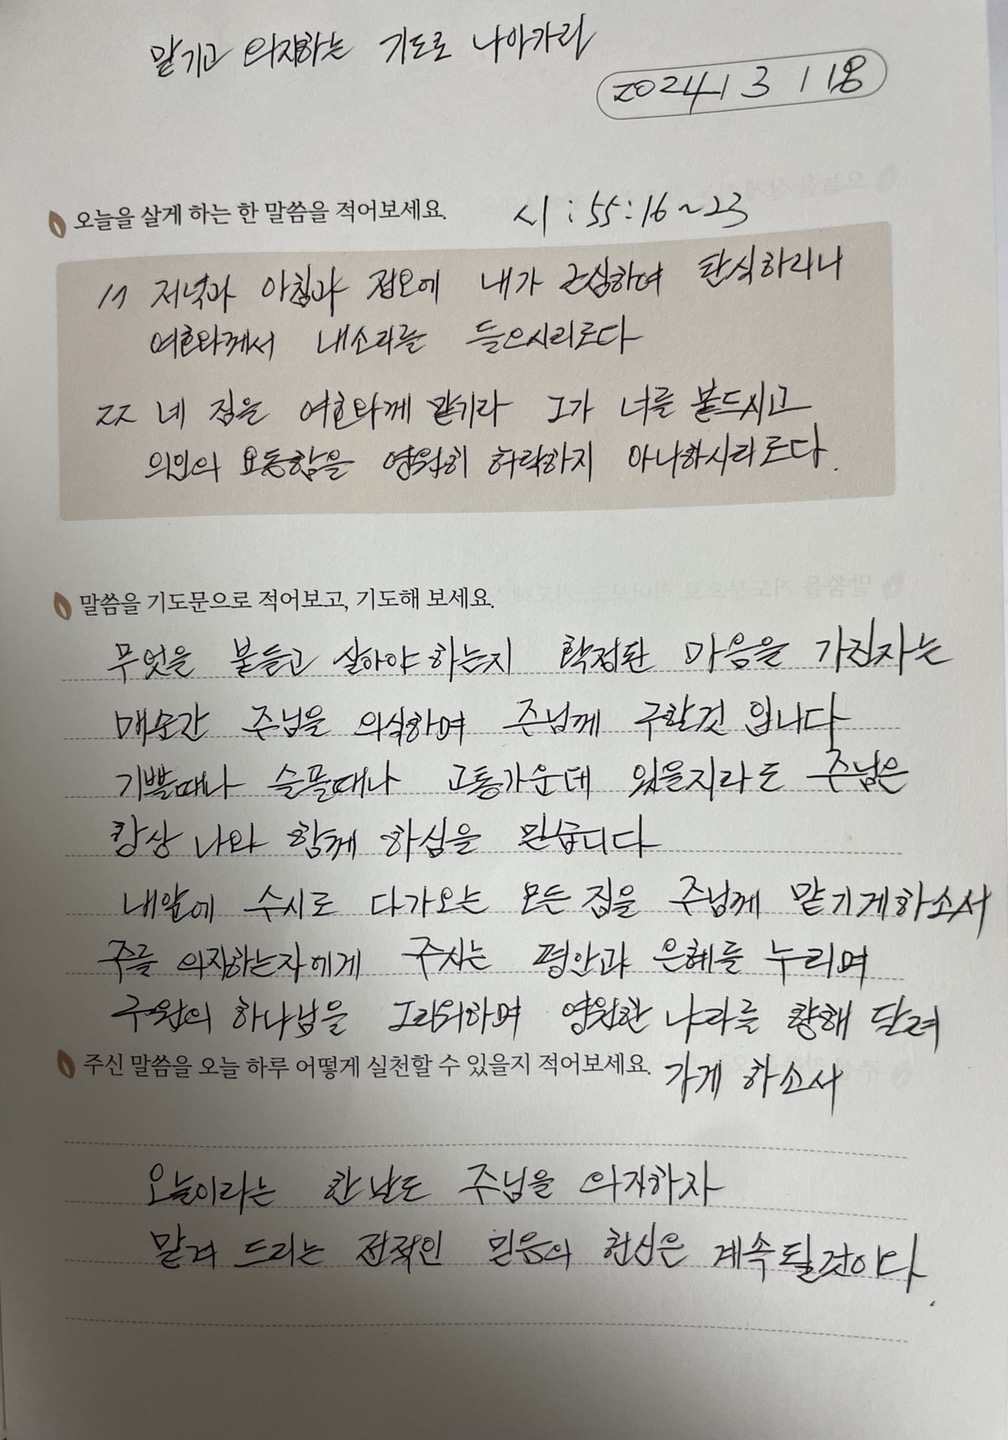 맡기고 의지하는 기도로 나아가리
2024 / 3 / 18
오늘을 살게 하는 한 말씀을 적어보세요.
시 : 55 : 16 ~ 23
17 저녁과 아침과 정오에 내가 근심하여 탄식하리니
여호와께서 내소리를 들으시리로다
22 네 짐을 여호와께 맡기라 그가 너를 붙드시고
의인의 요동함을 영원히 허락하지 아니하시리로다.
말씀을 기도문으로 적어보고, 기도해 보세요.
무엇을 붙들고 살아야 하는지 확정된 마음을 가진자는
매순간 주님을 의식하며 주님께 구할것 입니다
기쁠때나 슬플때나 고통가운데 있을지라도 주님은
항상 나와 함께 하심을 믿습니다
내앞에 수시로 다가오는 모든 짐을 주님께 맡기게하소서
주를 의지하는자에게 주시는 평안과 은혜를 누리며
구원의 하나님을 그리워하며 영원한 나라를 향해 달려
가게 하소서
주신 말씀을 오늘 하루 어떻게 실천할 수 있을지 적어보세요.
오늘이라는 한 날도 주님을 의지하자
맡겨 드리는 전적인 믿음의 헌신은 계속될것이다.